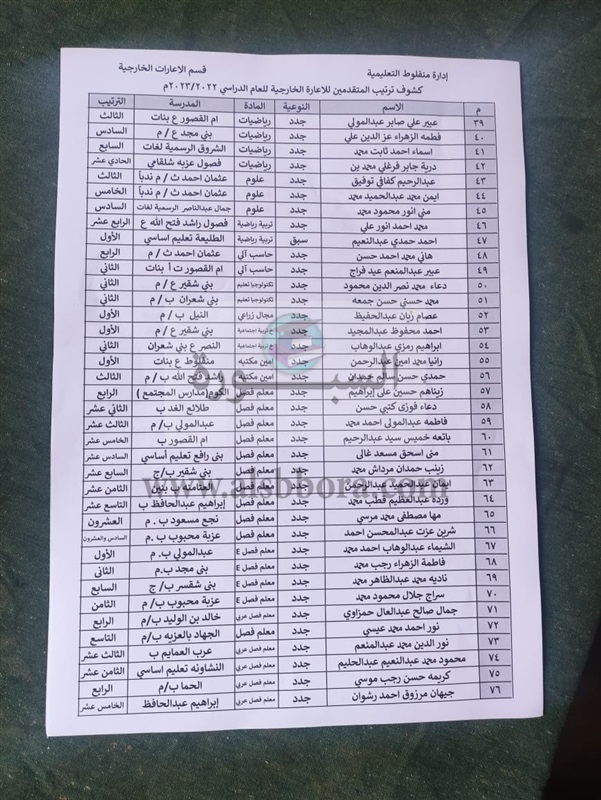 إدارة منفلوط التعليمية قسم الاعارات الخارجية
كشوف ترتيب المتقدمين للاعارة الخارجية للعام الدراسي ٢٠٢٣/٢٠٢٢م
م الاسم النوعية المادة المدرسة الترتيب
٣٩ عبير علي صابر عبدالمولي جدد رياضيات ام القصور ع بنات الثالث
٤٠ فطمه الزهراء عز الدين علي جدد رياضيات بني مجد ع/م السادس
٤١ اسماء احمد ثابت محمد جدد رياضيات الشروق الرسمية لغات السابع
٤٢ درية جابر فرغلي محمد ين جدد رياضيات فصول عزبه شلقامي الحادي عشر
٤٣ عبدالرحيم كفافي توفيق جدد علوم عثمان احمد ث / م ندباً الثالث
٤٤ ايمن محمد عبدالحميد محمد جدد علوم عثمان احمد ث / م ندباً الخامس
٤٥ مني انور محمود محمد جدد علوم جمال عبدالناصر الرسمية لغات السادس
٤٦ محمد احمد انور علي جدد تربية رياضية فصول راشد فتح الله ع الرابع عشر
٤٧ احمد حمدي عبدالنعيم سبق تربية رياضية الطليعة تعليم اساسي الأول
٤٨ هاني محمد احمد حسن جدد حاسب آلي عثمان احمد ث / م الرابع
٤٩ عبير عبدالمنعم عيد فراج جدد حاسب آلي ام القصور ت أ بنات الثاني
٥٠ دعاء محمد نصر الدين محمود جدد تكنولوجيا تعليم بني شقير ع / م الثاني
٥١ محمد حسني حسن جمعه جدد تكنولوجيا تعليم بني شعران ب / م الثاني
٥٢ عصام زيان عبدالحفيظ جدد مجال زراعي النيل ب / م الأول
٥٣ احمد محفوظ عبدالمجيد جدد خ تربية اجتماعية بني شقير ع / م الأول
٥٤ ابراهيم رمزي عبدالوهاب جدد خ تربية اجتماعية النصر ع بني شعران الثاني
٥٥ رانيا محمد امين عبدالرحمن جدد امين مكتبه منفلوط ع بنات الأول
٥٦ حمدي حسن سالم حمدان جدد امين مكتبه راشد فتح الله ب / م الثالث
٥٧ زيناهم حسين علي إبراهيم جدد معلم فصل الكوم(مدارس المجتمع ) الرابع
٥٨ دعاء فوزى كتبي حسن جدد معلم فصل طلائع الغد ب الثاني عشر
٥٩ فاطمه عبدالمولى احمد محمد جدد معلم فصل عبدالمولي ب/م الثالث عشر
٦٠ باتعه خميس سيد عبدالرحيم جدد معلم فصل ام القصور ب الخامس عشر
٦١ منى اسحق مسعد غالى جدد معلم فصل بني رافع تعليم أساسي السادس عشر
٦٢ زينب حمدان مرداش محمد جدد معلم فصل بني شقير ب/ج السابع عشر
٦٣ ايمان عبدالحميد عبدالرحمن جدد معلم فصل العتامنه ب بنين الثامن عشر
٦٤ ورده عبدالعظيم قطب محمد جدد معلم فصل إبراهيم عبدالحافظ ب التاسع عشر
٦٥ مها مصطفى محمد مرسي جدد معلم فصل نجع مسعود ب . م العشرون
٦٦ شرين عزت عبدالمحسن احمد جدد معلم فصل عزبة محبوب ب. م السادس والعشرون
٦٧ الشيماء عبدالوهاب احمد محمد جدد معلم فصل E عبدالمولي ب. م الأول
٦٨ فاطمة الزهراء رجب محمد جدد معلم فصل E بني مجد ب.م الثانى
٦٩ ناديه محمد عبدالظاهر محمد جدد معلم فصل E بني شقسر ب/ ج السابع
٧٠ سراج جلال محمود محمد جدد معلم فصل E عزبة محبوب ب/ م الثامن
٧١ جمال صالح عبدالعال حمزاوي جدد معلم فصل عربي خالد بن الوليد ب/م الرابع
٧٢ نور احمد محمد عيسي جدد معلم فصل الجهاد بالعزيه ب/م التاسع
٧٣ نور الدين محمد عبدالمنعم جدد معلم فصل عربي عرب العمايم ب الثالث عشر
٧٤ محمود محمد عبدالنعيم عبدالحليم جدد معلم فصل عربي النشاونه تعليم اساسي الثامن عشر
٧٥ كريمه حسن رجب موسي جدد معلم فصل عربي الحما ب/م الرابع
٧٦ جيهان مرزوق احمد رشوان جدد معلم فصل عربي إبراهيم عبدالحافظ الخامس عشر
السبورة
www.alsbbora.com